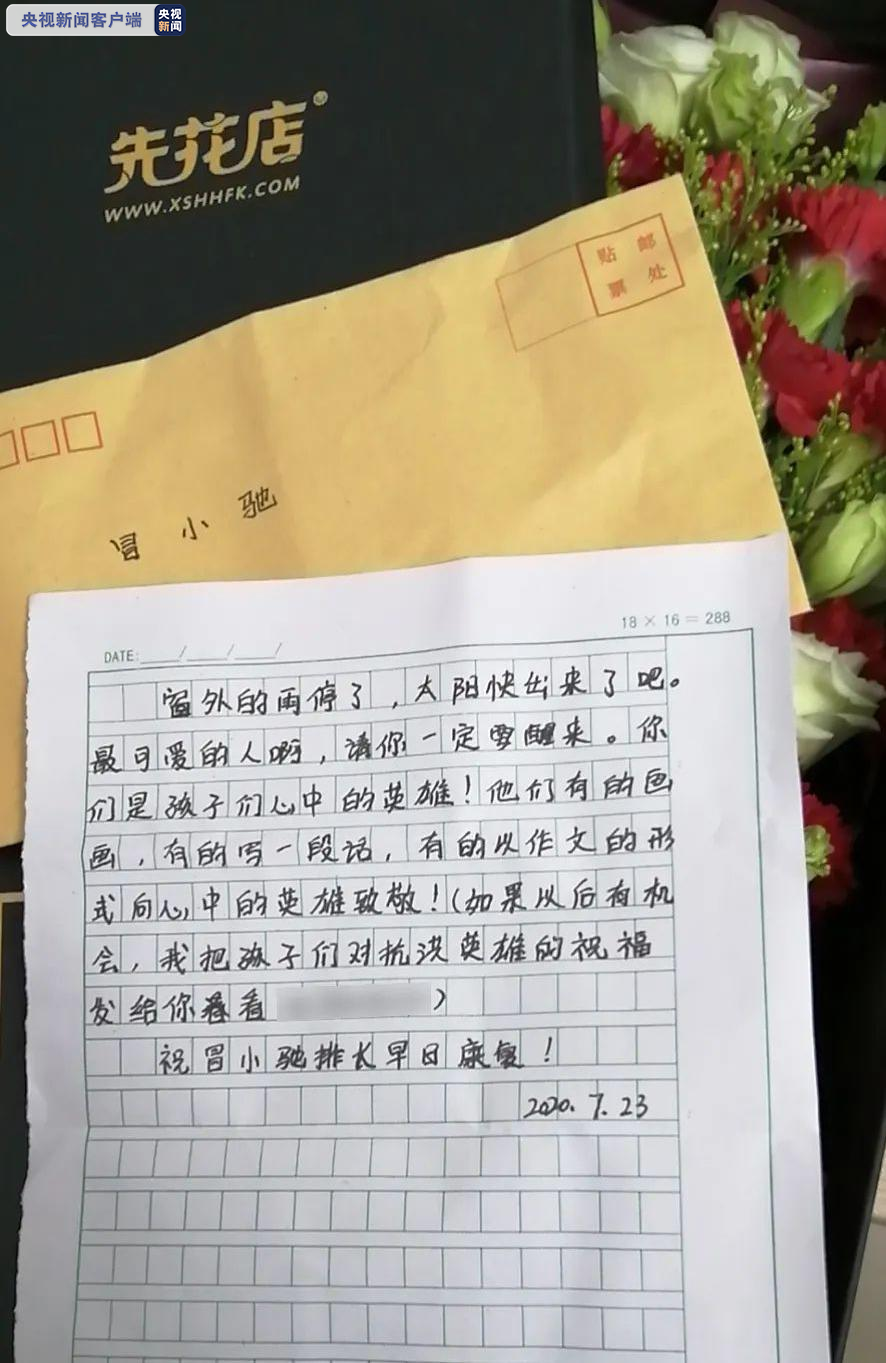 央视新闻客户端
央视
新闻
先花店
WWW.XSHHFK.COM
贴 邮
票 处
冒小驰
18 × 16 = 288
DATE: / / /
窗外的雨停了，太阳快出来了吧。
最可爱的人啊，请你一定要醒来。你
们是孩子们心中的英雄！他们有的画
画，有的写一段话，有的以作文的形
式向心中的英雄致敬！（如果以后有机
会，我把孩子们对抗洪英雄的祝福
发给你看看 ）
祝冒小驰排长早日康复！
2020.7.23